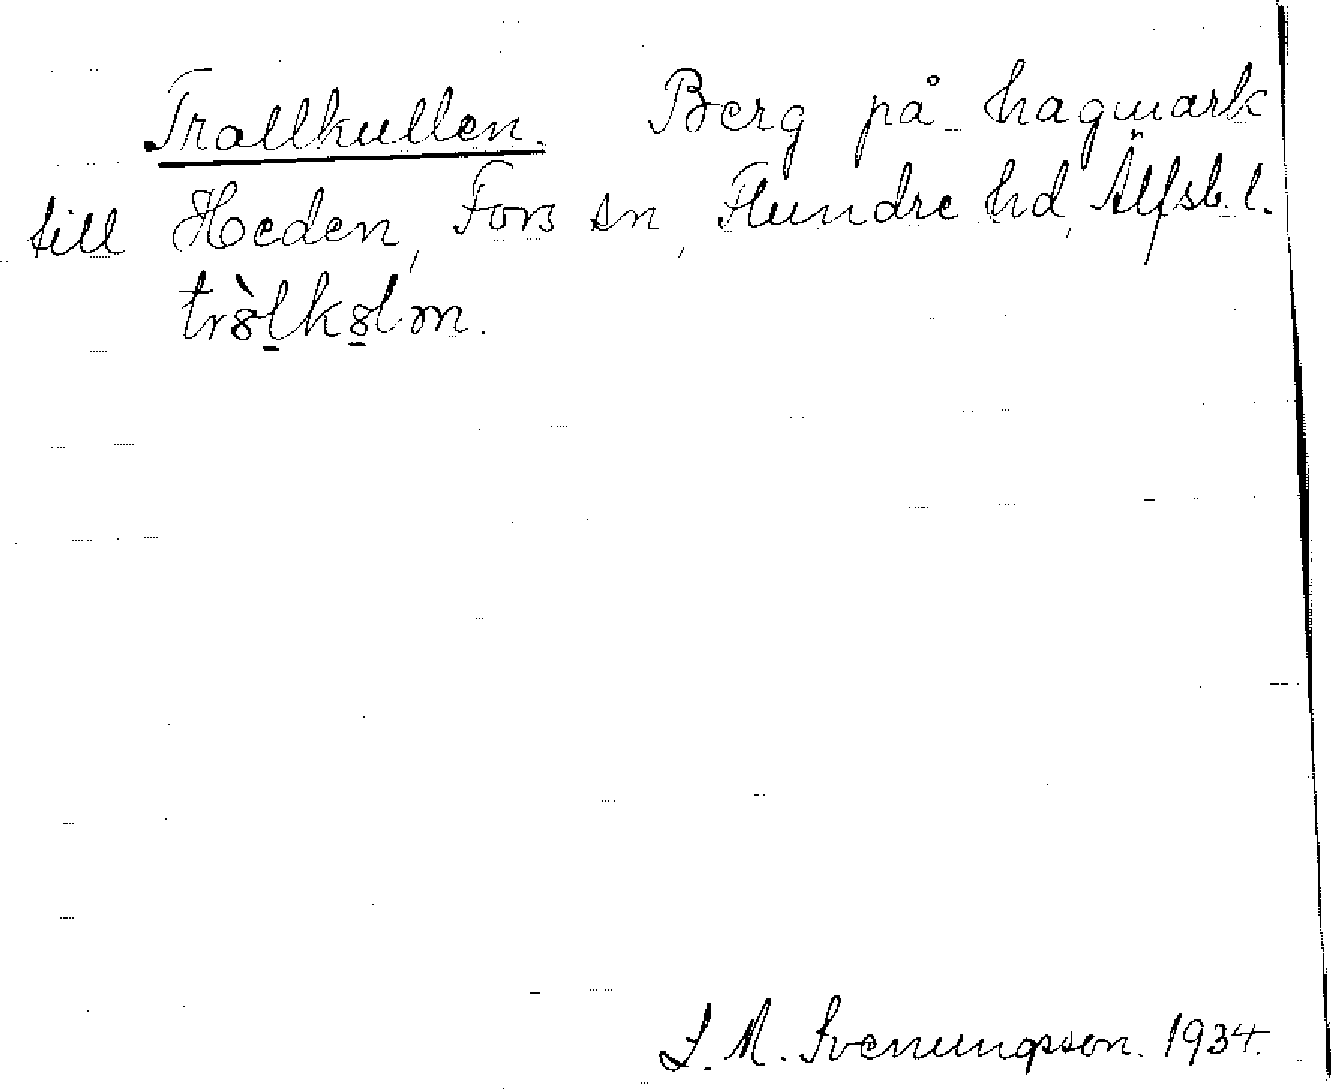 Trollkullen. Berg på hagmark
till Heden, Fors sn, Flundre hd, Älfsb. l.
trȍlkȣlm.
S. M. Svenungsson. 1934.